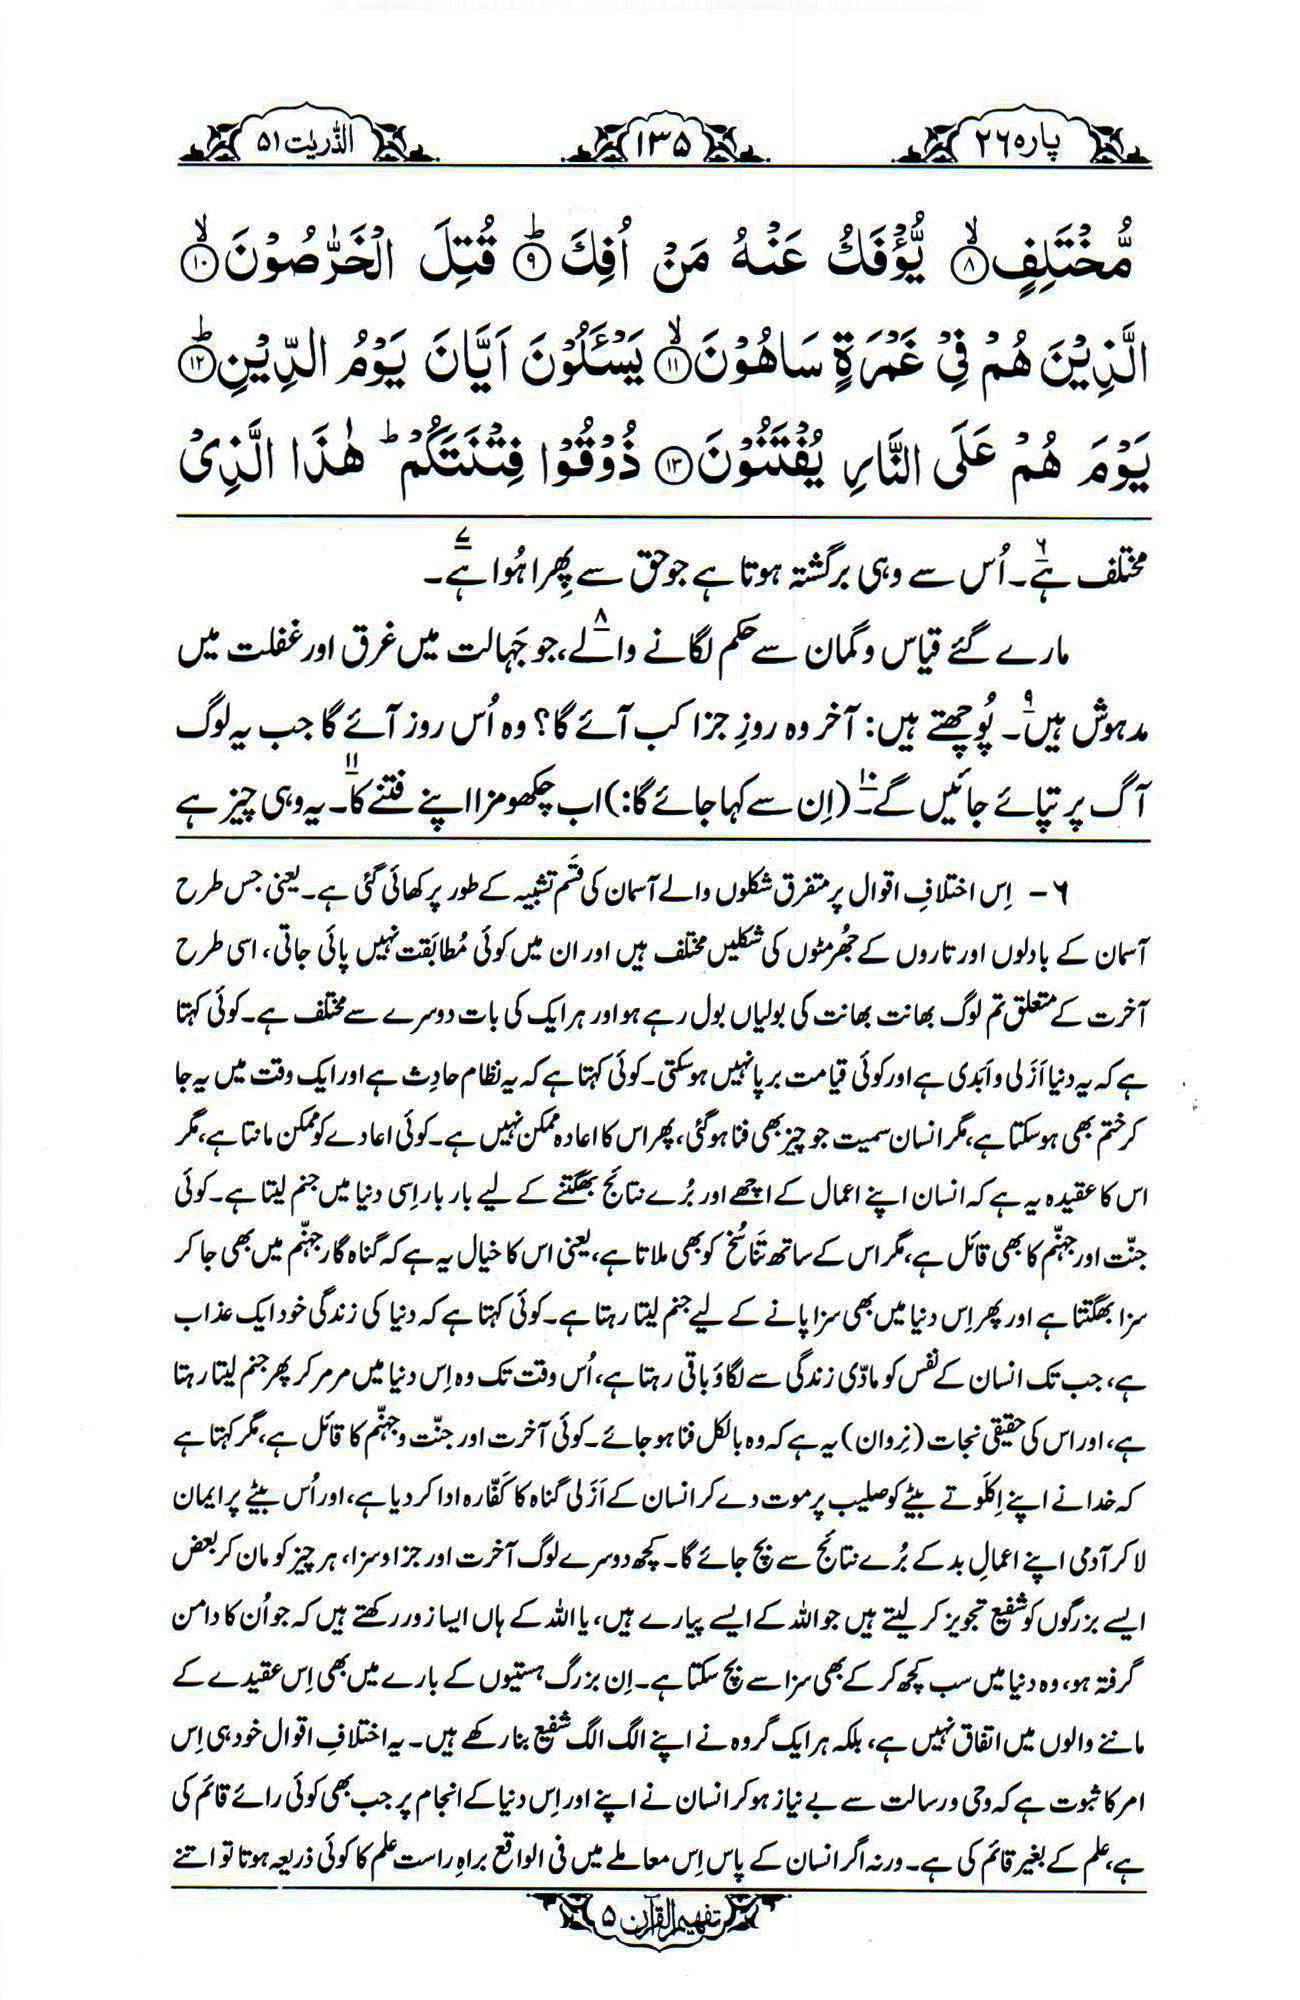 پارہ ۲۶
۱۳۵
الذّٰریٰت ۵۱
مُّخْتَلِفٍ ۙ﴿۸﴾ یُّؤْفَكُ عَنْهُ مَنْ اُفِكَ ؕ﴿۹﴾ قُتِلَ الْخَرّٰصُوْنَ ۙ﴿۱۰﴾
الَّذِیْنَ هُمْ فِیْ غَمْرَةٍ سَاهُوْنَ ۙ﴿۱۱﴾ یَسْـَٔلُوْنَ اَیَّانَ یَوْمُ الدِّیْنِ ؕ﴿۱۲﴾
یَوْمَ هُمْ عَلَی النَّارِ یُفْتَنُوْنَ ﴿۱۳﴾ ذُوْقُوْا فِتْنَتَكُمْ ؕ هٰذَا الَّذِیْ
مختلف ہے۶۔ اُس سے وہی برگشتہ ہوتا ہے جو حق سے پِھرا ہُوا ہے۷۔
مارے گئے قیاس و گمان سے حکم لگانے والے۸، جو جَہالت میں غرق اور غفلت میں
مدہوش ہیں۹۔ پُوچھتے ہیں: آخر وہ روزِ جزا کب آئے گا؟ وہ اُس روز آئے گا جب یہ لوگ
آگ پر تپائے جائیں گے۱۰۔ (اِن سے کہا جائے گا:) اب چکھو مزا اپنے فتنے کا۱۱۔ یہ وہی چیز ہے
۶- اِس اختلافِ اقوال پر متفرق شکلوں والے آسمان کی قَسم تشبیہ کے طور پر کھائی گئی ہے۔ یعنی جس طرح
آسمان کے بادلوں اور تاروں کے جُھرمٹوں کی شکلیں مختلف ہیں اور ان میں کوئی مُطابَقت نہیں پائی جاتی، اسی طرح
آخرت کے متعلق تم لوگ بھانت بھانت کی بولیاں بول رہے ہو اور ہر ایک کی بات دوسرے سے مختلف ہے۔ کوئی کہتا
ہے کہ یہ دنیا اَزَلی و اَبَدی ہے اور کوئی قیامت برپا نہیں ہو سکتی۔ کوئی کہتا ہے کہ یہ نظام حادِث ہے اور ایک وقت میں یہ جا
کر ختم بھی ہو سکتا ہے، مگر انسان سمیت جو چیز بھی فنا ہو گئی، پھر اس کا اعادہ ممکن نہیں ہے۔ کوئی اعادے کو ممکن مانتا ہے، مگر
اس کا عقیدہ یہ ہے کہ انسان اپنے اعمال کے اچھے اور بُرے نتائج بھگتنے کے لیے بار بار اِسی دنیا میں جنم لیتا ہے۔ کوئی
جنّت اور جہنّم کا بھی قائل ہے، مگر اس کے ساتھ تَناسُخ کو بھی ملاتا ہے، یعنی اس کا خیال یہ ہے کہ گناہ گار جہنّم میں بھی جا کر
سزا بھگتتا ہے اور پھر اِس دنیا میں بھی سزا پانے کے لیے جنم لیتا رہتا ہے۔ کوئی کہتا ہے کہ دنیا کی زندگی خود ایک عذاب
ہے، جب تک انسان کے نفس کو مادّی زندگی سے لگاؤ باقی رہتا ہے، اُس وقت تک وہ اِس دنیا میں مر مر کر پھر جنم لیتا رہتا
ہے، اور اس کی حقیقی نجات (نِروان) یہ ہے کہ وہ بالکل فنا ہو جائے۔ کوئی آخرت اور جنّت و جہنّم کا قائل ہے، مگر کہتا ہے
کہ خدا نے اپنے اِکلَوتے بیٹے کو صلیب پر موت دے کر انسان کے اَزَلی گناہ کا کَفّارہ ادا کر دیا ہے، اور اُس بیٹے پر ایمان
لا کر آدمی اپنے اعمالِ بد کے بُرے نتائج سے بچ جائے گا۔ کچھ دوسرے لوگ آخرت اور جزا و سزا، ہر چیز کو مان کر بعض
ایسے بزرگوں کو شفیع تجویز کر لیتے ہیں جو اللہ کے ایسے پیارے ہیں، یا اللہ کے ہاں ایسا زور رکھتے ہیں کہ جو اُن کا دامن
گرفتہ ہو، وہ دنیا میں سب کچھ کر کے بھی سزا سے بچ سکتا ہے۔ اِن بزرگ ہستیوں کے بارے میں بھی اِس عقیدے کے
ماننے والوں میں اتفاق نہیں ہے، بلکہ ہر ایک گروہ نے اپنے الگ الگ شفیع بنا رکھے ہیں۔ یہ اختلافِ اقوال خود ہی اِس
امر کا ثبوت ہے کہ وحی و رسالت سے بے نیاز ہو کر انسان نے اپنے اور اِس دنیا کے انجام پر جب بھی کوئی رائے قائم کی
ہے، علم کے بغیر قائم کی ہے۔ ورنہ اگر انسان کے پاس اِس معاملے میں فی الواقع براہِ راست علم کا کوئی ذریعہ ہوتا تو اتنے
تفہیم القرآن ۵